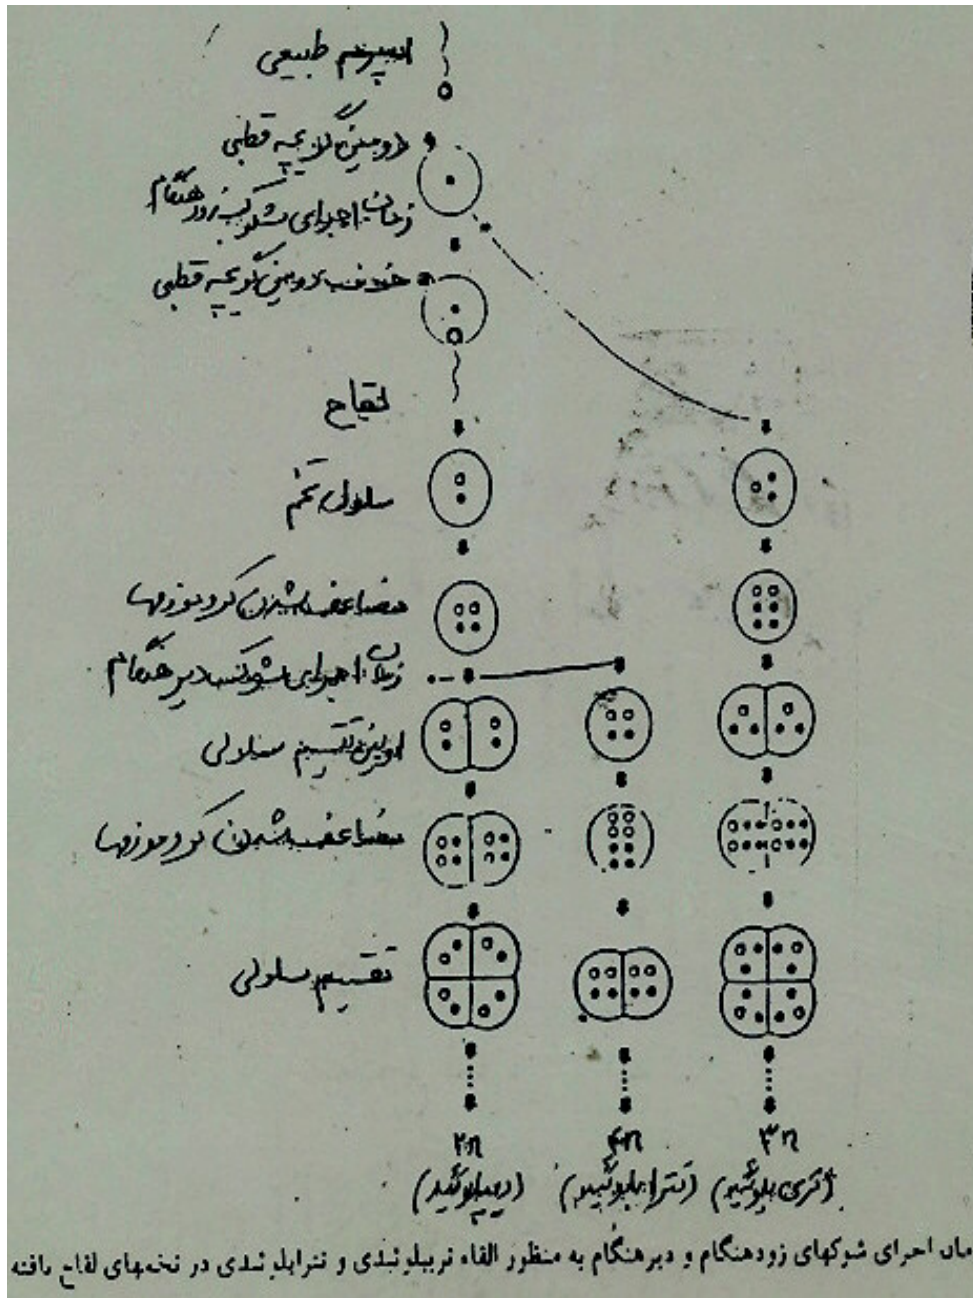 اسپرم طبیعی
دومین گویچه قطبی
زمان اجرای شوک زود هنگام
حذف دومین گویچه قطبی
لقاح
سلول تخم
مضاعف شدن کروموزمها
زمان اجرای شوک دیر هنگام
اولین تقسیم سلولی
مضاعف شدن کروموزمها
تقسیم سلولی
۲n ۴n ۳n
(دیپلوئید) (تتراپلوئید) (تری پلوئید)
مان اجرای شوکهای زودهنگام و دیرهنگام به منظور القاء تریپلوئیدی و تتراپلوئیدی در تخمهای لقاح یافته